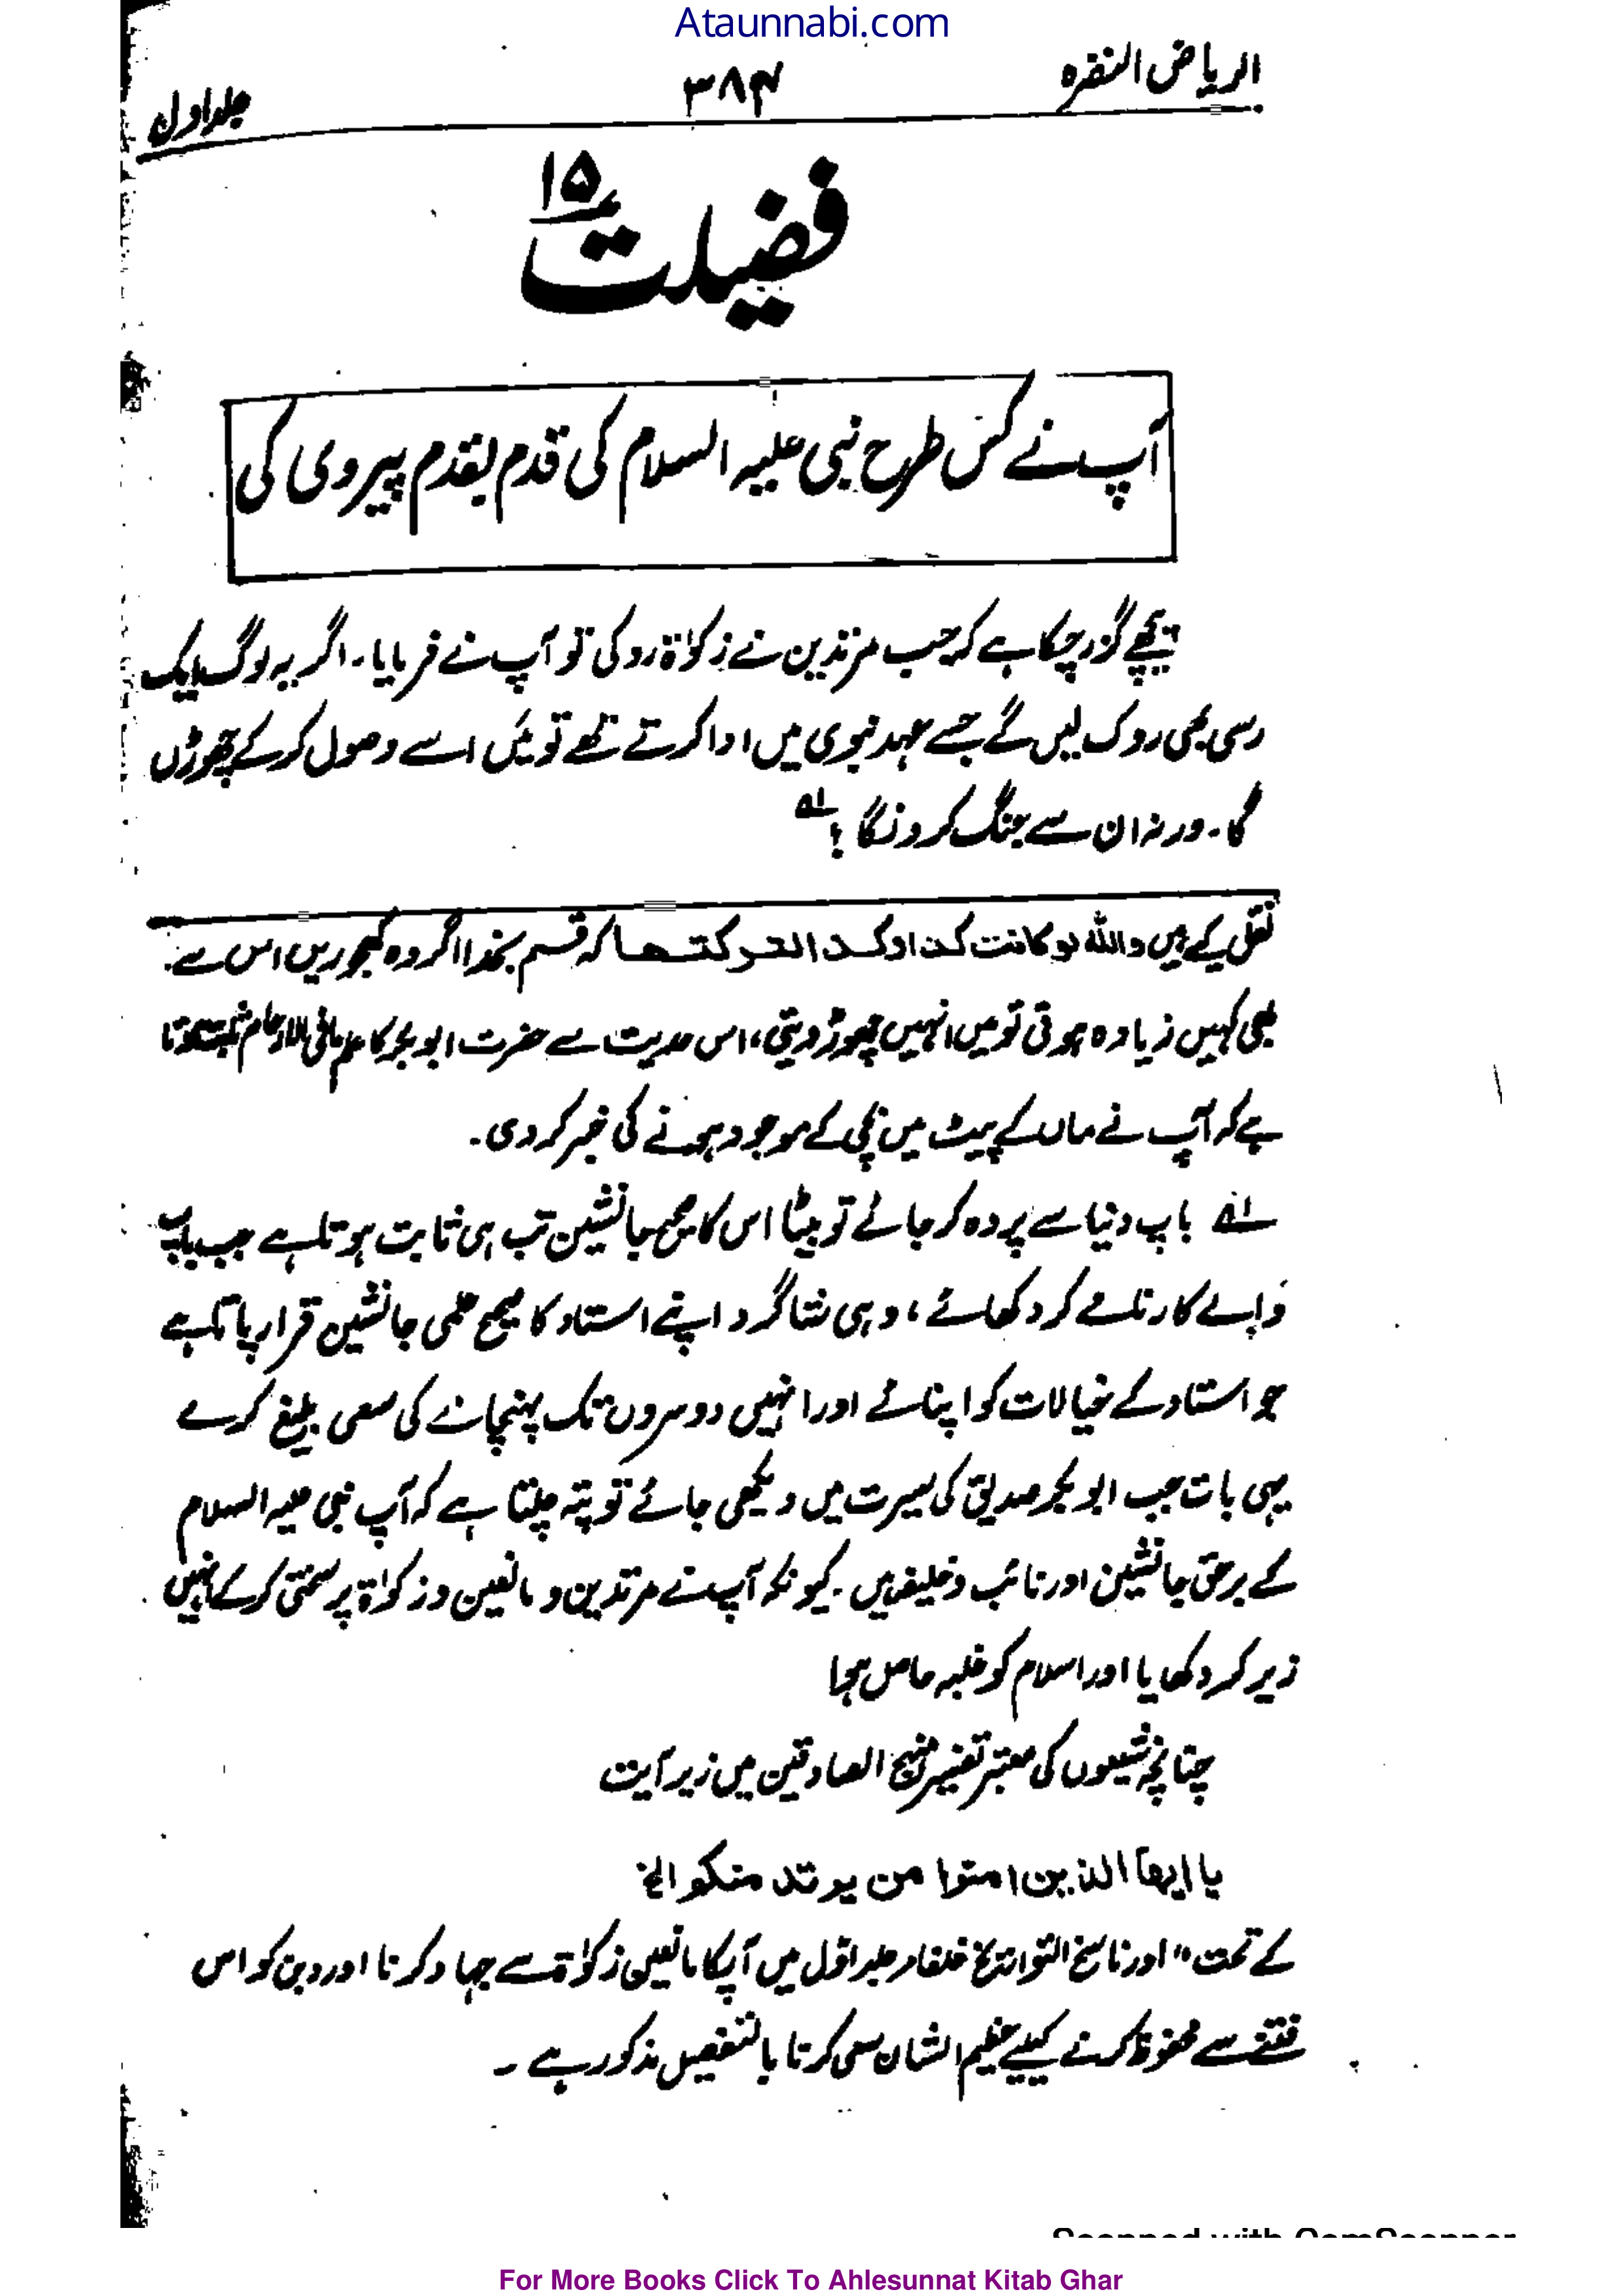 Ataunnabi.com
الریاض النضرہ
۳۸۴
جلد اول
فضیلت ۱۵
آپ نے کس طرح نبی علیہ السلام کی قدم بقدم پیروی کی
پیچھے گزر چکا ہے کہ جب مرتدین نے زکوٰۃ روکی تو آپ نے فرمایا۔ اگر یہ لوگ ایک
رسی بھی روک لیں گے جسے عہد نبوی میں ادا کرتے تھے تو میں اسے وصول کر کے چھوڑں
گا۔ ورنہ ان سے جنگ کرونگا !
نقل کیے ہیں واللہ لو کانت کذا وکذا لترکتھا کہ قسم بخدا اگر وہ کھجوریں اس سے
بھی کہیں زیادہ ہوتی تو میں انہیں چھوڑ دیتی، اس حدیث سے حضرت ابو بکر کا علم مافی الارحام ثابت ہوتا
ہے کہ آپ نے ماں کے پیٹ میں بچی کے موجود ہونے کی خبر کر دی۔
باپ دنیا سے پردہ کر جائے تو بیٹا اس کا صحیح جانشین تب ہی ثابت ہوتا ہے جب باپ
والے کارنامے کر دکھائے، وہی شاگرد اپنے استاد کا صحیح علمی جانشین قرار پاتا ہے
جو استاد کے خیالات کو اپنائے اور انہیں دوسروں تک پہنچانے کی سعی بلیغ کرے
یہی بات جب ابو بکر صدیق کی سیرت میں دیکھی جائے تو پتہ چلتا ہے کہ آپ نبی علیہ السلام
کے برحق جانشین اور نائب و خلیفہ ہیں۔ کیونکہ آپ نے مرتدین و مانعین و زکوٰۃ پر سختی کر کے انہیں
زیر کر دکھایا اور اسلام کو غلبہ حاصل ہوا
چنانچہ شیعوں کی معتبر تفسیر منہج الصادقین میں زیر آیت
یا ایھا الذین امنوا من یرتد منکم الخ
کے تحت" اور ناسخ التواریخ خلفاء جلد اوّل میں آپکا مانعین زکوٰۃ سے جہاد کرنا اور دین کو اس
فتنے سے محفوظ کرنے کیلیے عظیم الشان سعی کرنا بالتفصیل مذکور ہے۔
Scanned with CamScanner
For More Books Click To Ahlesunnat Kitab Ghar